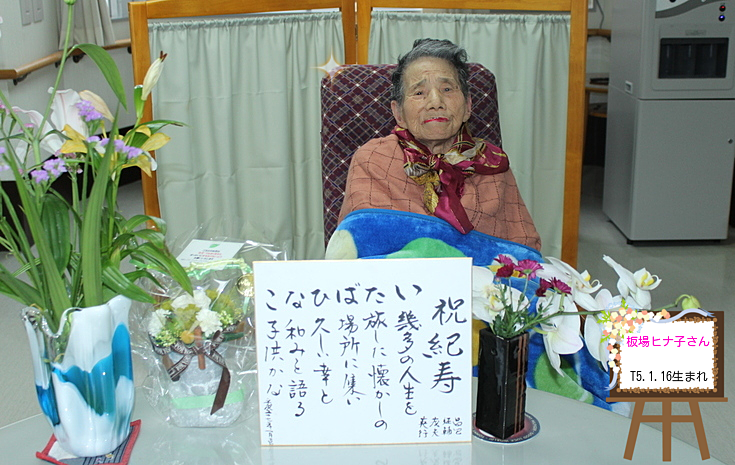 祝紀寿
い 幾多の人生を
た 旅した懐かしの
ば 場所に集い
ひ 久しい幸と
な 和みと語る
こ 子供かな
板場ヒナ子さん
T5.1.16生まれ